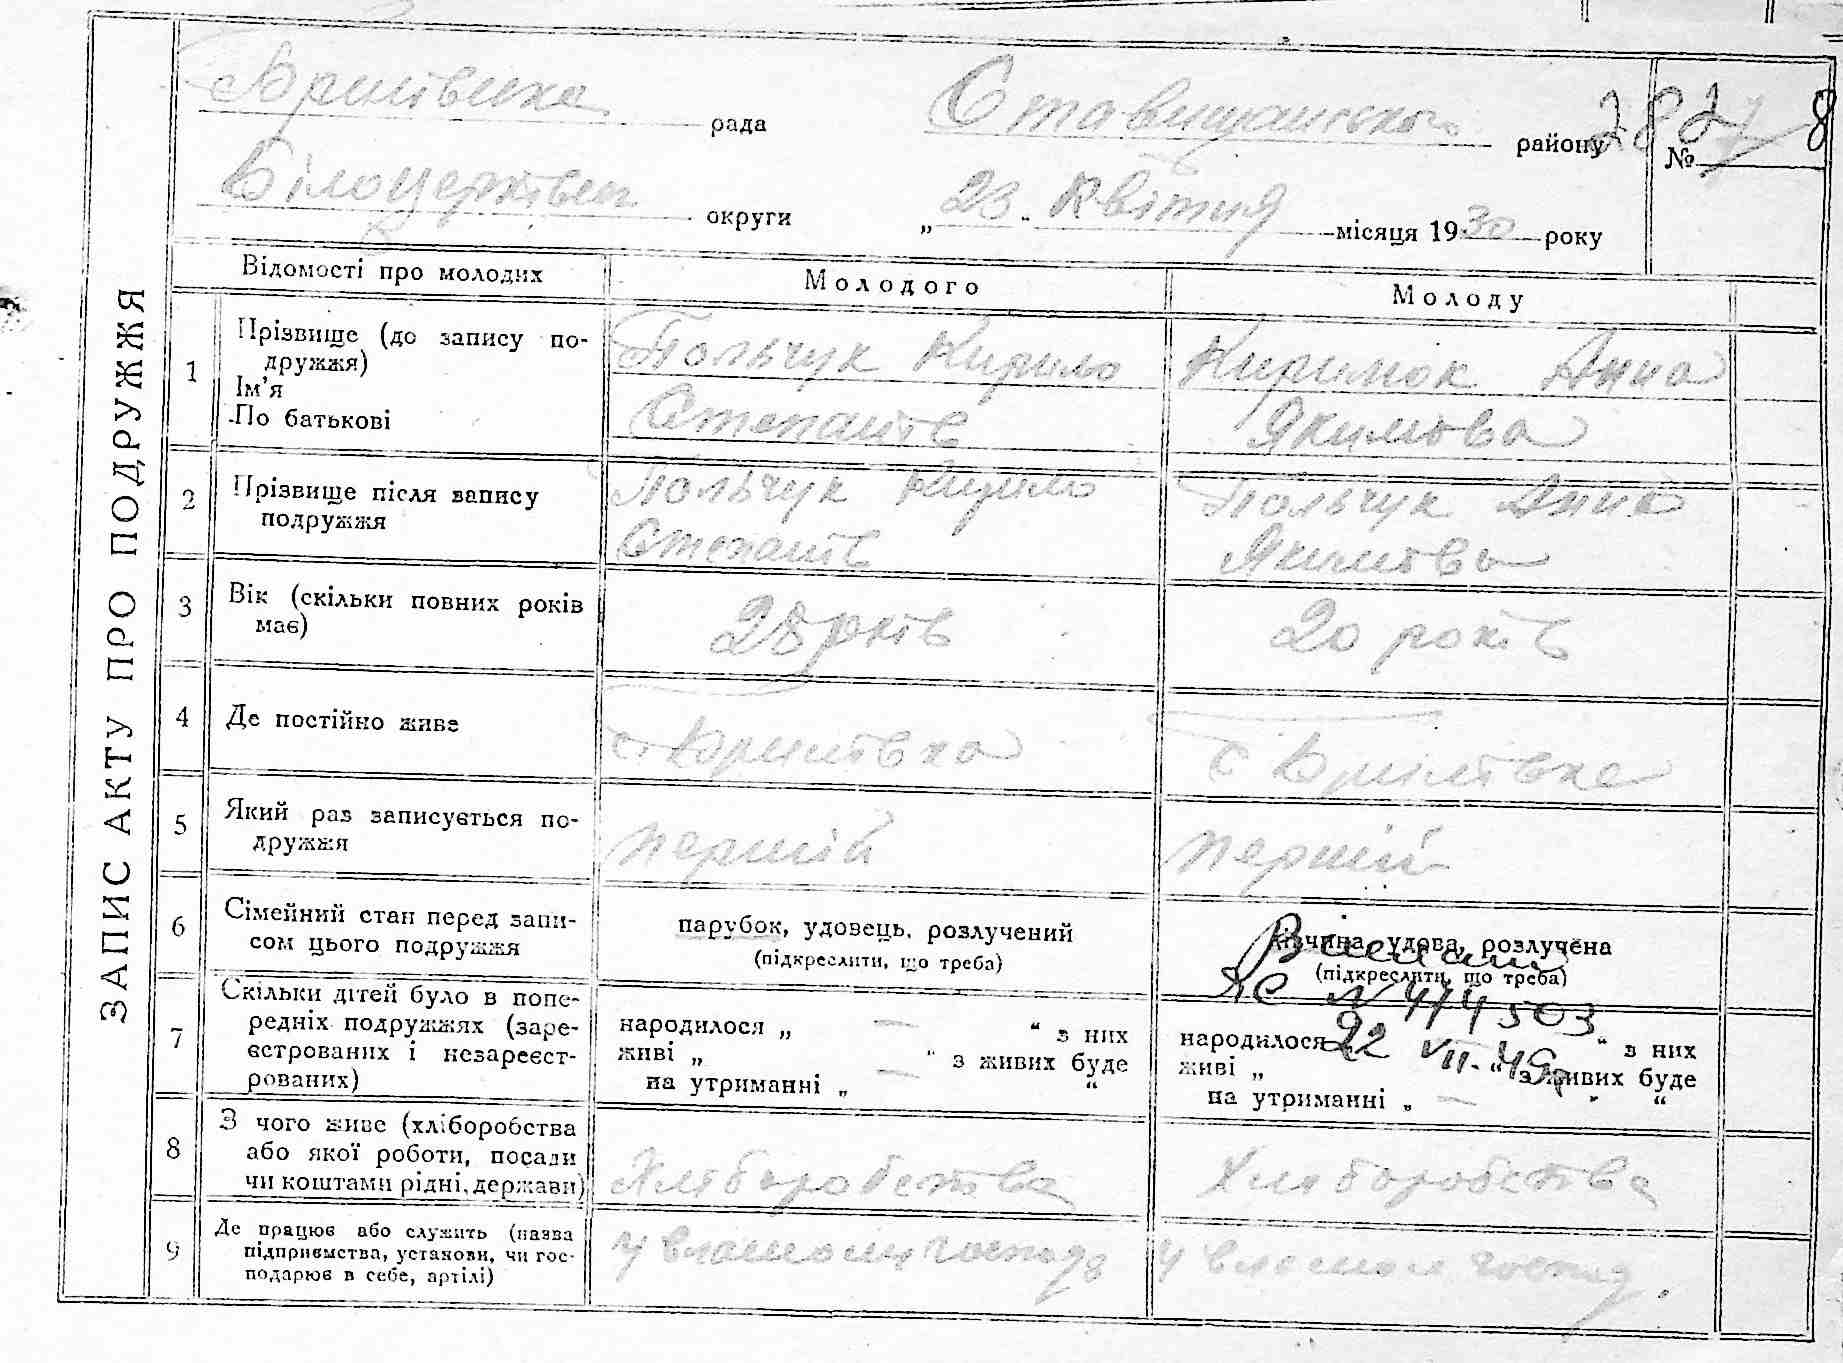 ЗАПИС АКТУ ПРО ПОДРУЖЖЯ
рада Ставищанського району
№ 8
Білоцерківськ округи „23" Квітня місяця 1930 року
Відомості про молодих Молодого Молоду
1 Прізвище (до запису по-
дружжя)
Ім'я
По батькові
Польчук Кирило
Степанів
Киримок Анна
Якимова
2 Прізвище після запису
подружжя
Польчук Кирило
Степанів
Польчук Анна
Якимова
3 Вік (скільки повних років
має)
28 років
20 років
4 Де постійно живе
с.
с
5 Який раз записується по-
дружжя
перший
перший
6 Сімейний стан перед запи-
сом цього подружжя
парубок, удовець, розлучений
(підкреслити, що треба)
дівчина, удова, розлучена
(підкреслити, що треба)
ЯС N 474503
22 VII-49
7 Скільки дітей було в попе-
редніх подружжях (заре-
єстрованих і незареєст-
рованих)
народилося „ — " з них
живі „ " з живих буде
на утриманні „ — "
народилося „ " з них
живі „ " з живих буде
на утриманні „ — "
8 З чого живе (хліборобства
або якої роботи, посади
чи коштами рідні, держави)
Хліборобства
Хліборобства
9 Де працює або служить (назва
підприємства, установи, чи гос-
подарює в себе, артілі)
У власному господ
У власном господ.